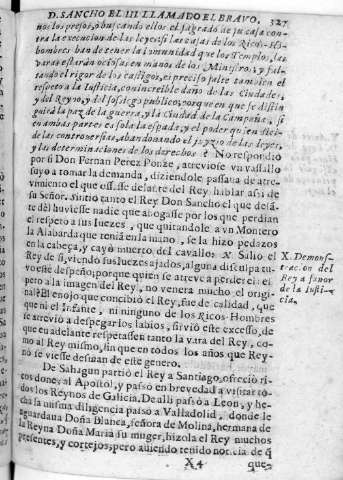 D. SANCHO EL IIII LLAMADO EL BRAVO. 327
nos los presos, o buscando ellos el sagrado de su casa con-
tra la execucion de las leyes: si las casas de los Ricos-Hō-
bres han de tener la imunidad que los Templos, las
varas estarán ociosas en manos de los Ministros: y fal-
tando el rigor de los castigos, es preciso falte tambien el
respeto a la Iusticia, con increible daño de las Ciudades,
y del Reyno, y del sosiego publico; porque en que se distin
guirá la paz de la guerra, y la Ciudad de la Campaña, si
en ambas partes es sola la espada, y el poder quien deci-
de las controversias, abandonando el juyzio de las leyes,
y las determinaciones de los derechos? No respondio
por si Don Fernan Perez Ponze, atreviose vn vassallo
suyo a tomar la demanda, diziendole passava de atre-
vimiento el que ossasse delante del Rey hablar assi de
su Señor. Sintio tanto el Rey Don Sancho el que delã-
te dèl huviesse nadie que abogasse por los que perdian
el respeto a sus Iuezes, que quitandole a vn Montero
la Alabarda que tenia en la mano, se la hizo pedazos
en la cabeça, y cayò muerto del cavallo. X Salio el
Rey de si, viendo sus Iuezes ajados, alguna disculpa tu-
vo este despeño; porque quien se atreve a perder el res-
peto a la imagen del Rey, no venera mucho el origi-
nal? El enojo que concibió el Rey, fue de calidad, que
ni el Infante, ni ninguno de los Ricos-Hombres
se atrevió a despegar los labios, sirvió este excesso, de
que en adelante respetassen tanto la vara del Rey, co-
mo al Rey mismo, sin que en todos los años que Rey-
nò se viesse desman de este genero.
X. Demons-
tracion del
Rey a favor
de la Iusti-
cia.
De Sahagun partiò el Rey a Santiago, ofreciò ri-
cos dones al Apostol, y passò en brevedad a visitar to-
dos los Reynos de Galicia. De alli passò a Leon, y he-
cha la misma diligencia passò a Valladolid, donde le
aguardava Doña Blanca, señora de Molina, hermana de
la Reyna Doña Maria su muger, hizola el Rey muchos
presentes, y cortejos, pero aviendo tenido noticia de q̃
X4 que